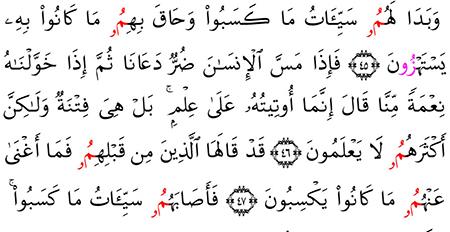 وَبَدَا لَهُمُۥ سَيِّـَٔاتُ مَا كَسَبُوا۟ وَحَاقَ بِهِمُۥ مَا كَانُوا۟ بِهِۦ
يَسْتَهْزُونَ ﴿٤٥﴾ فَإِذَا مَسَّ ٱلْإِنسَـٰنَ ضُرٌّ دَعَانَا ثُمَّ إِذَا خَوَّلْنَـٰهُ
نِعْمَةً مِّنَّا قَالَ إِنَّمَا أُوتِيتُهُۥ عَلَىٰ عِلْمٍۭ ۚ بَلْ هِىَ فِتْنَةٌ وَلَـٰكِنَّ
أَكْثَرَهُمُۥ لَا يَعْلَمُونَ ﴿٤٦﴾ قَدْ قَالَهَا ٱلَّذِينَ مِن قَبْلِهِمُۥ فَمَا أَغْنَىٰ
عَنْهُمُۥ مَا كَانُوا۟ يَكْسِبُونَ ﴿٤٧﴾ فَأَصَابَهُمُۥ سَيِّـَٔاتُ مَا كَسَبُوا۟ ۚ